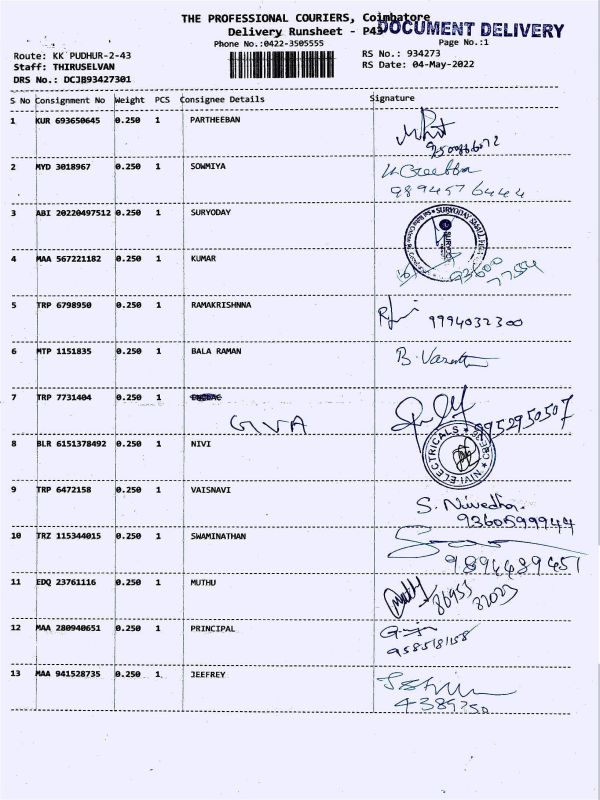 THE PROFESSIONAL COURIERS, Coimbatore
DOCUMENT DELIVERY
Delivery Runsheet - P43
Phone No.:0422-3505555
Page No.:1
Route: KK PUDHUR-2-43
RS No.: 934273
Staff: THIRUSELVAN
RS Date: 04-May-2022
DRS No.: DCJB93427301
S No Consignment No Weight PCS Consignee Details Signature
1 KUR 693650645 0.250 1 PARTHEEBAN
2 MYD 3018967 0.250 1 SOWMIYA
9894576444
3 ABI 20220497512 0.250 1 SURYODAY
SURYODAY
4 MAA 567221182 0.250 1 KUMAR
93600
77554
5 TRP 6798950 0.250 1 RAMAKRISHNNA
9994032300
6 MTP 1151835 0.250 1 BALA RAMAN
7 TRP 7731404 0.250 1
GIVA
9952950507
8 BLR 6151378492 0.250 1 NIVI
NIVI ELECTRICALS
9 TRP 6472158 0.250 1 VAISNAVI
S. Nivedha.
9360599944
10 TRZ 115344015 0.250 1 SWAMINATHAN
9894489451
11 EDQ 23761116 0.250 1 MUTHU
86955
87023
12 MAA 280940651 0.250 1 PRINCIPAL
9585181158
13 MAA 941528735 0.250 1 JEEFREY